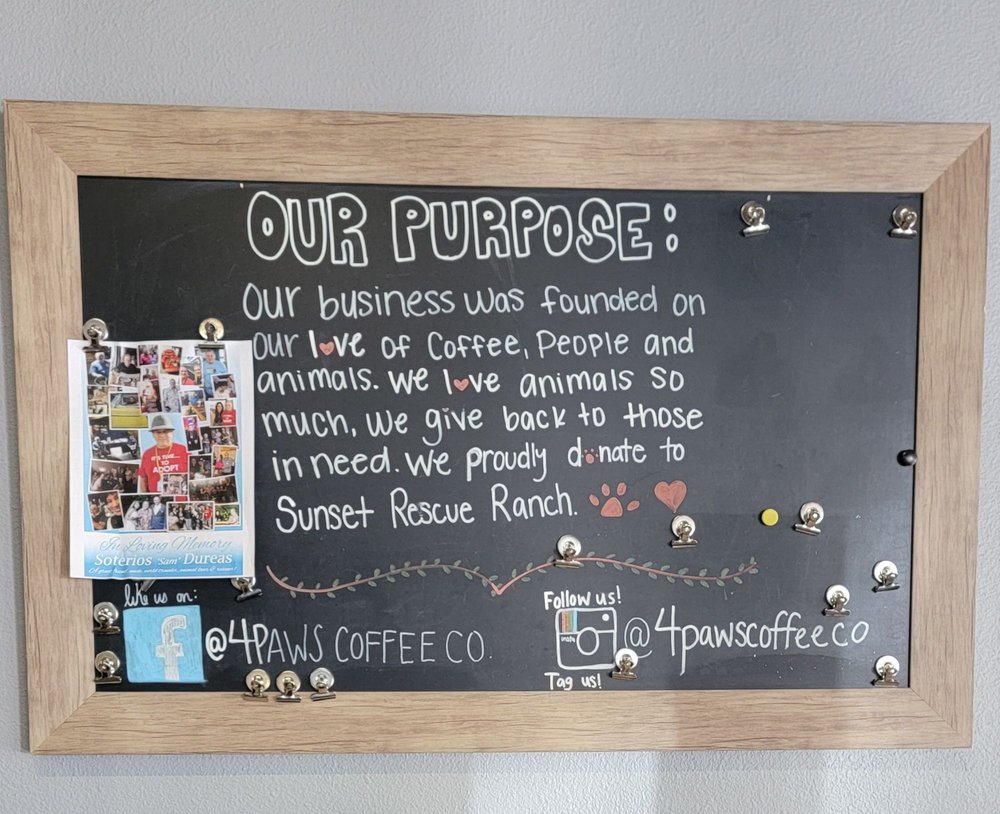 OUR PURPOSE:
Our business was founded on
our love of Coffee, People and
animals. We love animals so
much, we give back to those
in need. We proudly donate to
Sunset Rescue Ranch.
IT'S TIME...
TO
ADOPT
In Loving Memory
Soterios "Sam" Dureas
like us on:
f
@4PAWS COFFEE CO.
Follow us!
insta
@4pawscoffeeco
Tag us!